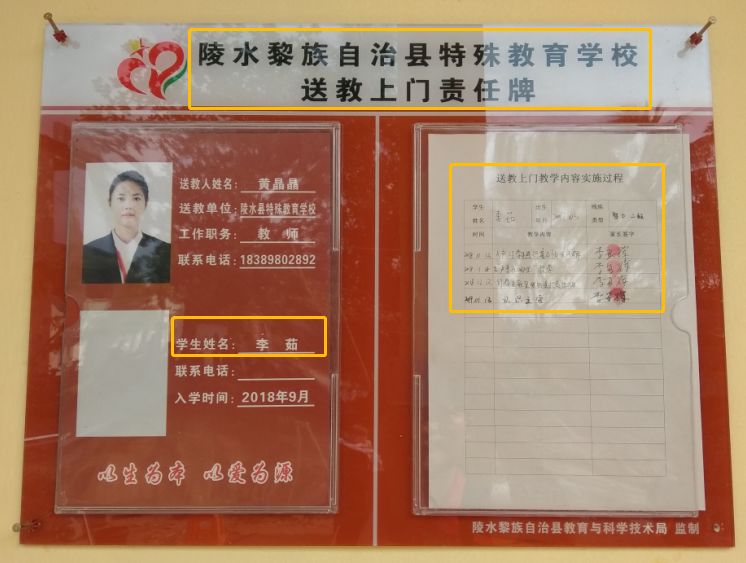 陵水黎族自治县特殊教育学校
送教上门责任牌
送教人姓名: 黄晶晶
送教单位: 陵水县特殊教育学校
工作职务: 教 师
联系电话: 18389802892
学生姓名: 李 茹
联系电话:
入学时间: 2018年9月
以生为本 以爱为源
送教上门教学内容实施过程
学生姓名 李茹 出生年月 残疾类型 智力二级
时间 教学内容 家长签字
陵水黎族自治县教育与科学技术局 监制